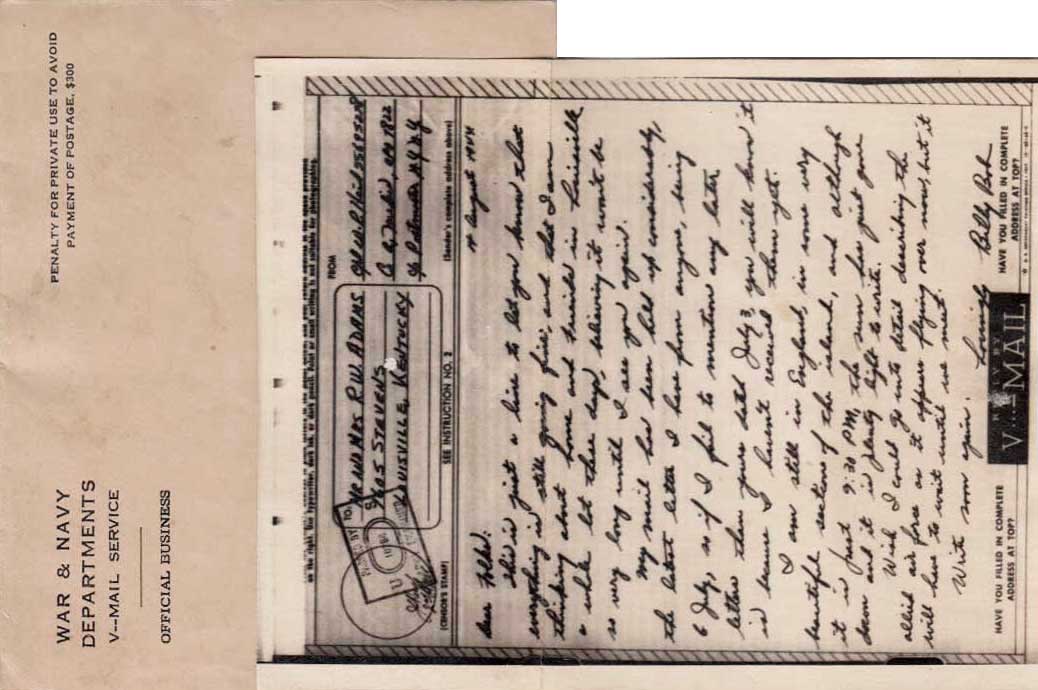 PENALTY FOR PRIVATE USE TO AVOID
PAYMENT OF POSTAGE, $300
WAR & NAVY
DEPARTMENTS
V--MAIL SERVICE
OFFICIAL BUSINESS
PASSED BY
U
(CENSOR'S STAMP)
TO
MR AND MRS R.W. ADAMS
3405 STEVENS
LOUISVILLE, KENTUCKY
SEE INSTRUCTION NO. 2
FROM
(Sender's complete address above)
August 1944
Dear Folks:
This is just a line to let you know that
everything is still going fine, and that I am
thinking about home and friends in Louisville
a whole lot these days, believing it won't be
so very long until I see you again.
My mail has been held up considerably,
the latest letter I have from anyone, being
6 July, so if I fail to mention any later
letters than yours dated July 3, you will know it
is because I havent received them yet.
I am still in England, in some very
beautiful sections of the island, and although
it is past 9:30 PM, the sun has just gone
down and it is plenty light to write.
Wish I could go into detail describing the
allied air force as it appears flying over now, but it
will have to wait until we meet.
Write soon again.
Lovingly
Billy Bob
HAVE YOU FILLED IN COMPLETE
ADDRESS AT TOP?
V...MAIL
HAVE YOU FILLED IN COMPLETE
ADDRESS AT TOP?